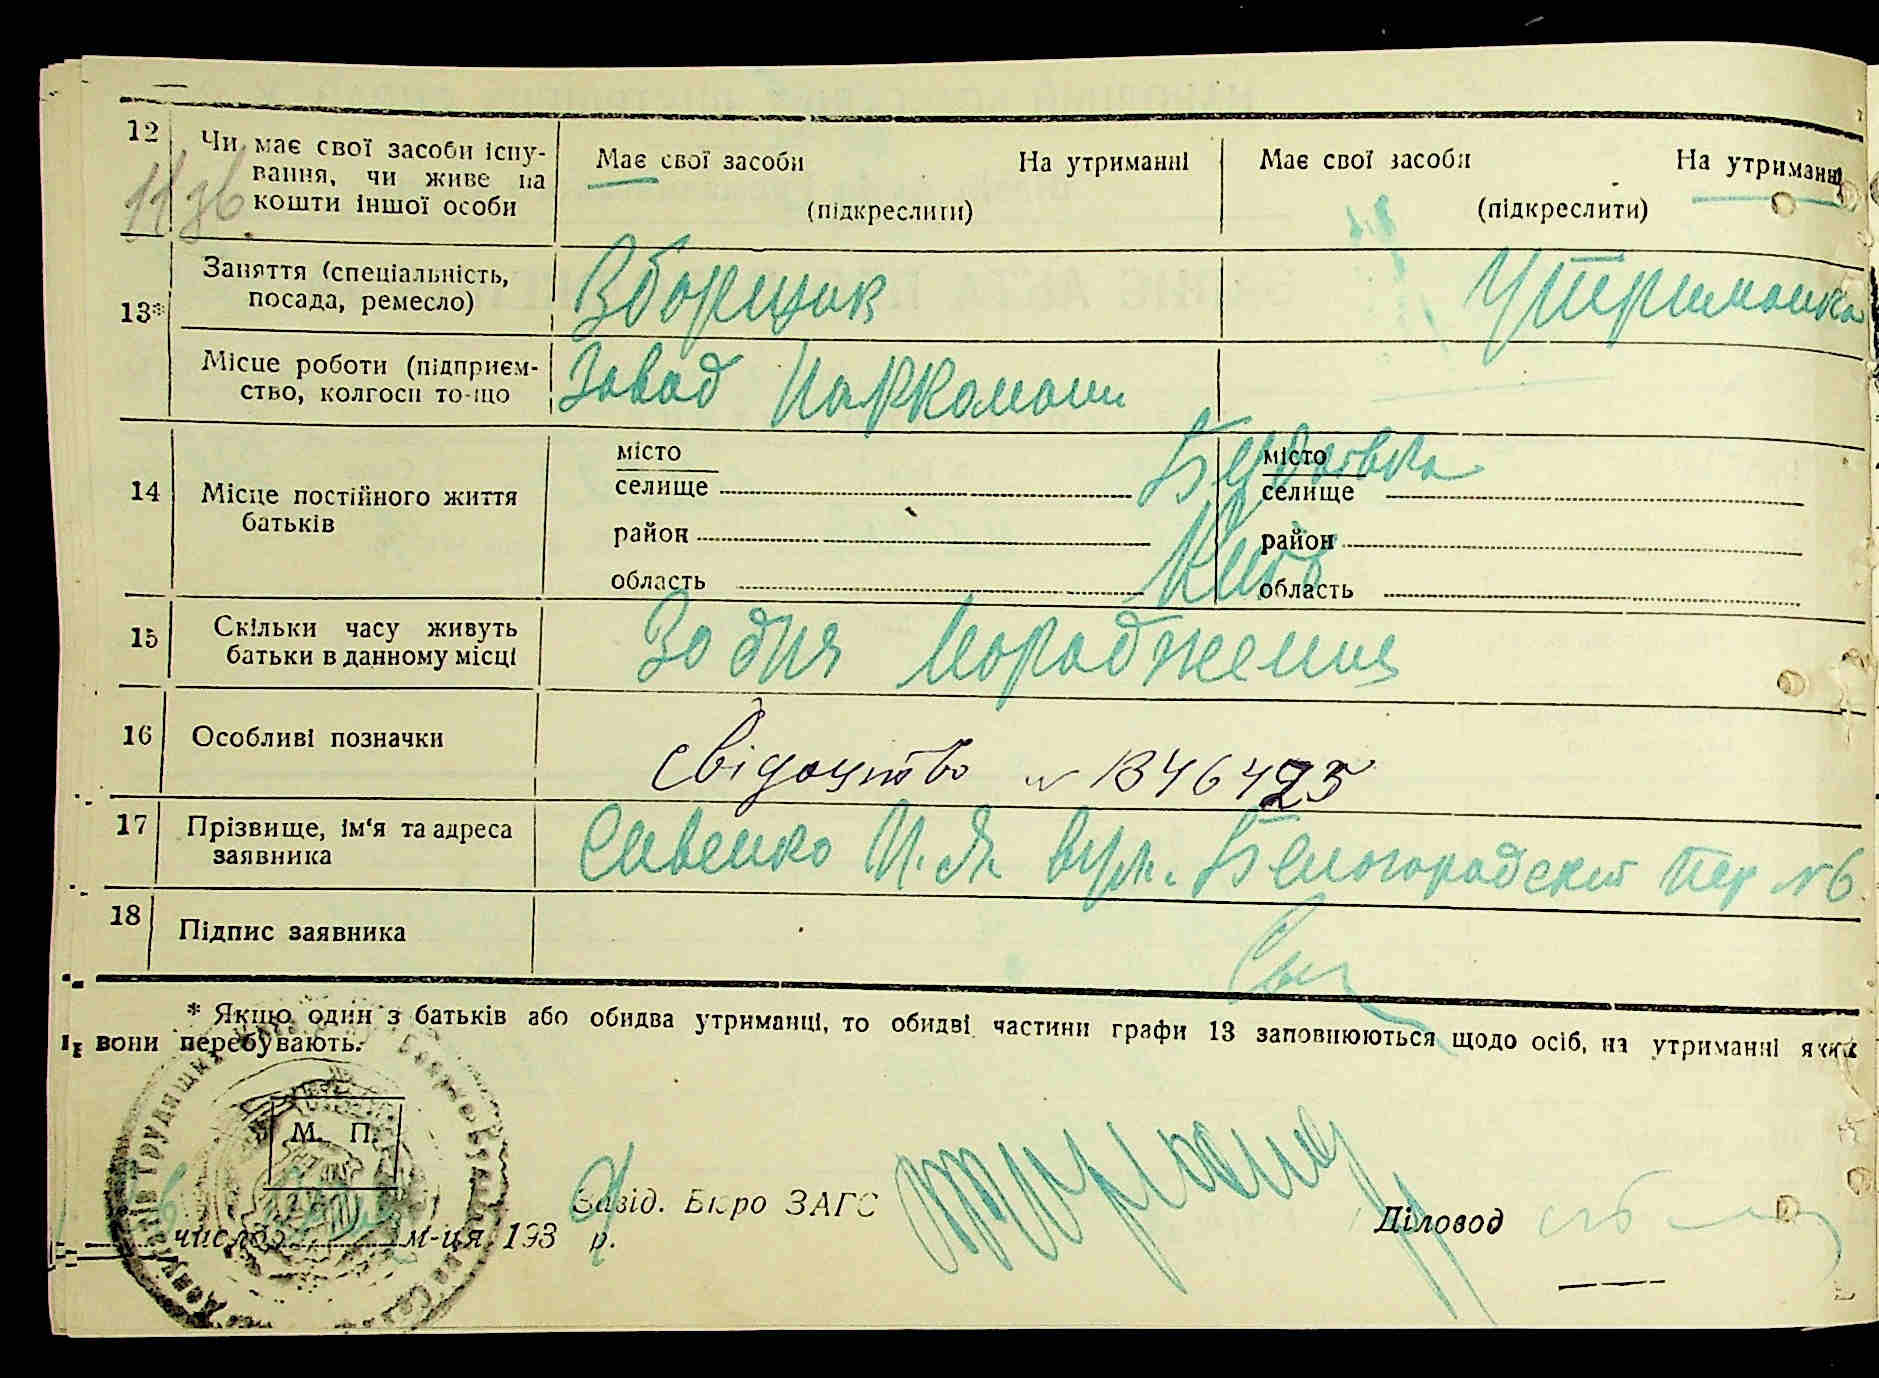 12 Чи має свої засоби існу-
вання, чи живе на
кошти іншої особи
Має свої засоби На утриманні
(підкреслити)
Має свої засоби На утриманні
(підкреслити)
13* Заняття (спеціальність,
посада, ремесло)
Зборщик
Утриманка
Місце роботи (підприєм-
ство, колгосп то-що
Завод
14 Місце постійного життя
батьків
місто
селище
район
область
місто
селище
район
область
Київ
15 Скільки часу живуть
батьки в данному місці
Зо дня народження
16 Особливі позначки
свідоцтво № 1346425
17 Прізвище, ім'я та адреса
заявника
Савенко И. Я. вул. Белогородский пер №6
18 Підпис заявника
* Якщо один з батьків або обидва утриманці, то обидві частини графи 13 заповнюються щодо осіб, на утриманні яких
вони перебувають.
М. П.
Завід. Бюро ЗАГС
Діловод
число м-ця 193 р.